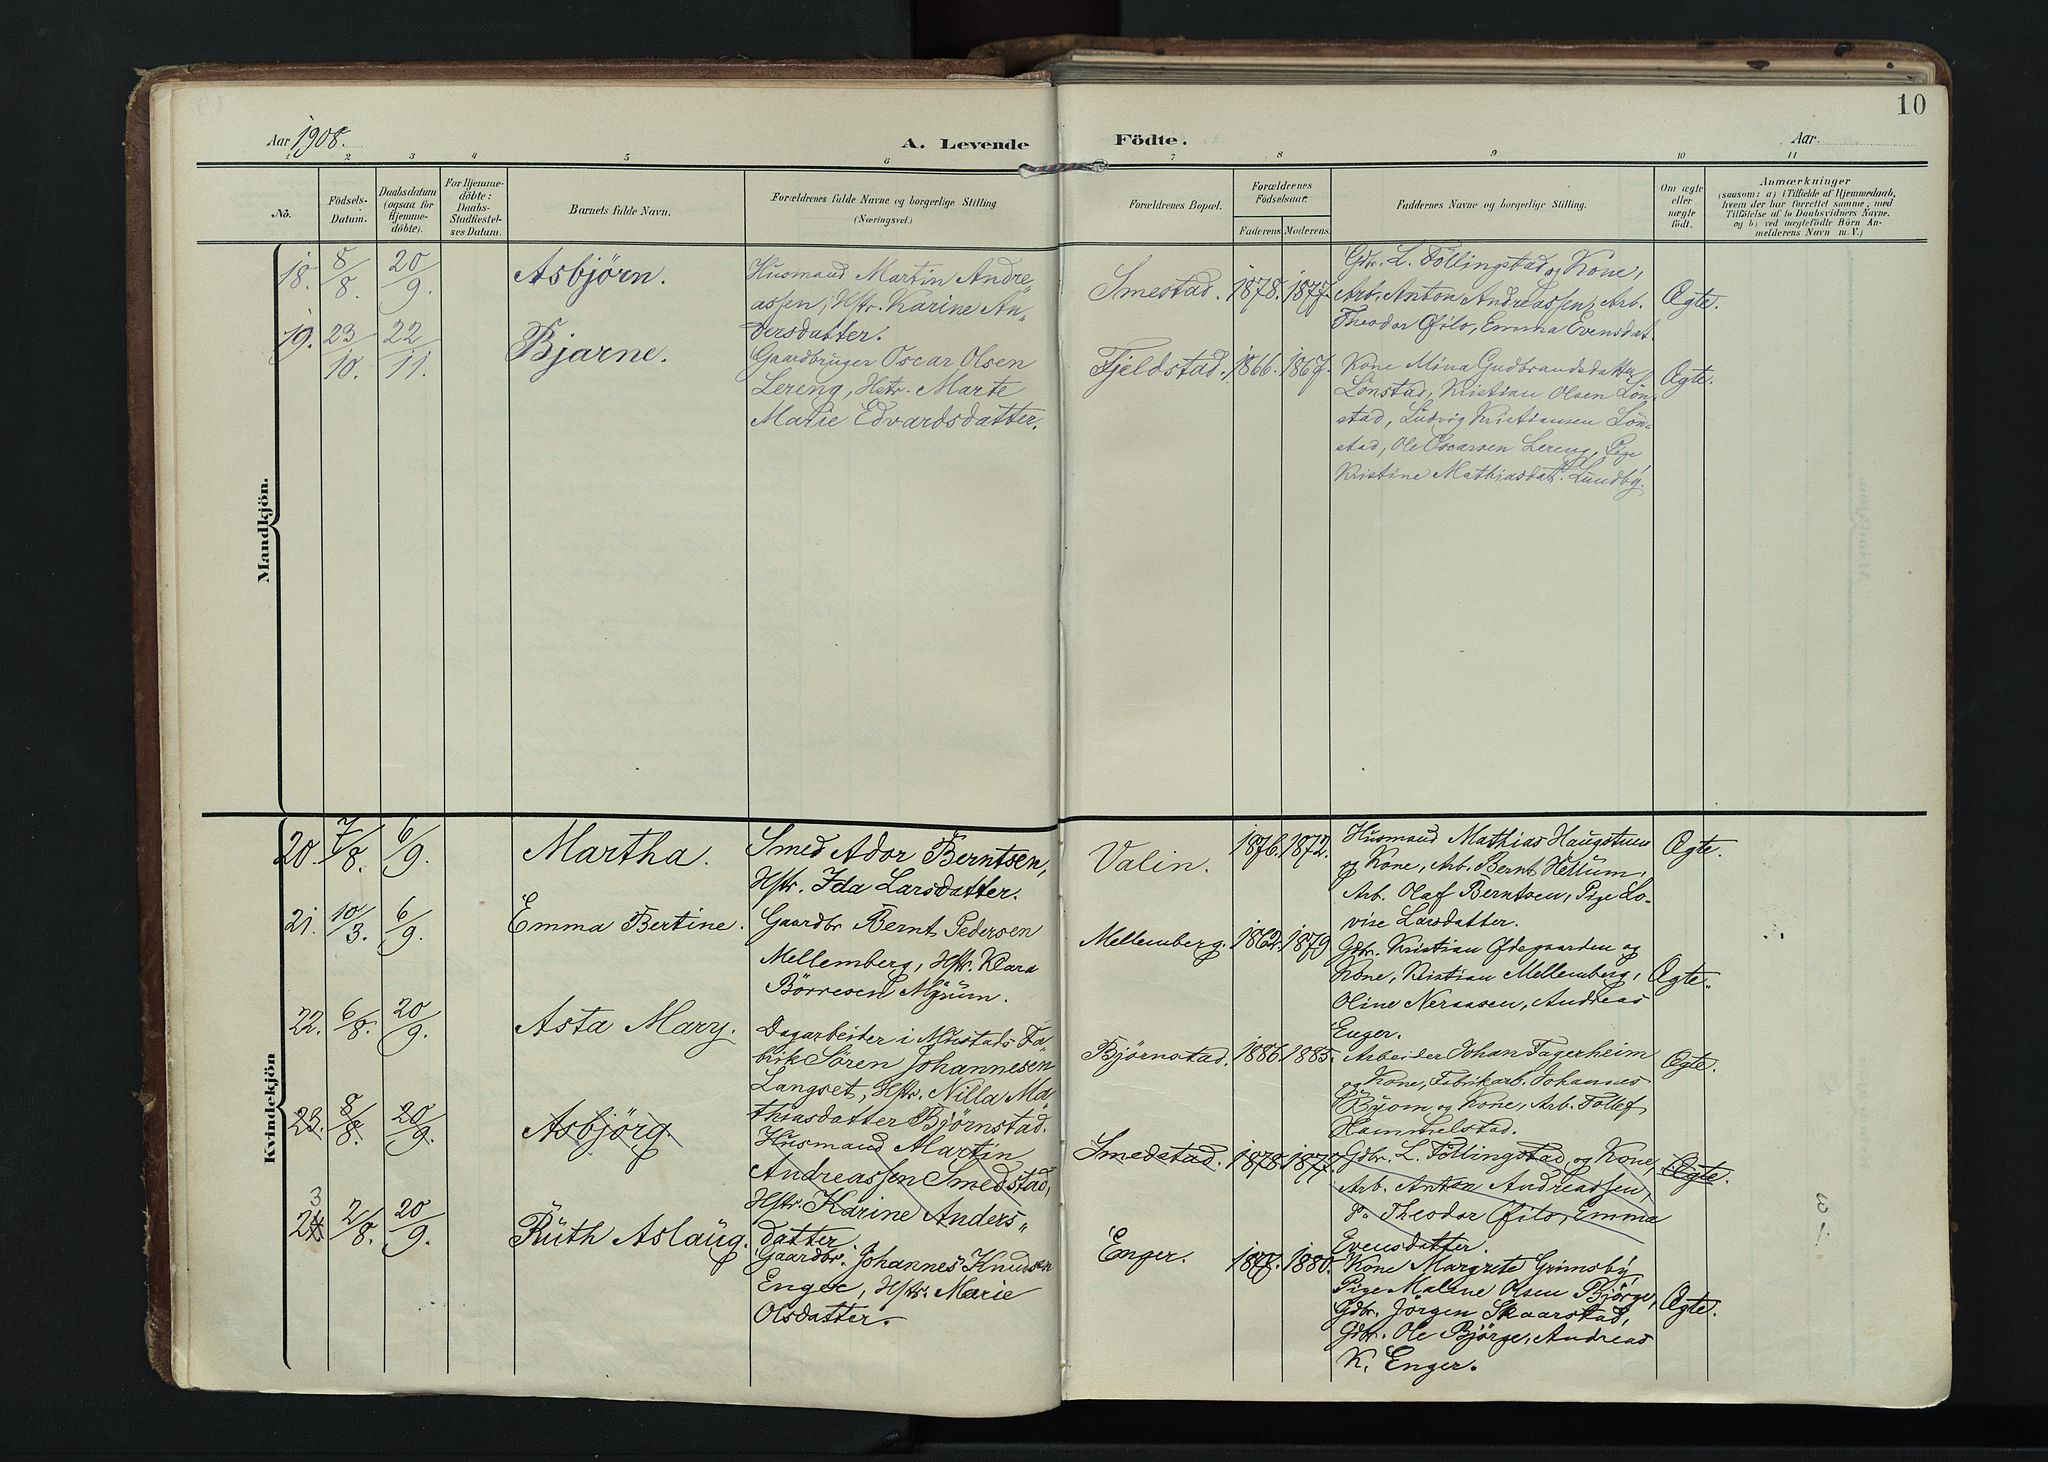 10
Aar 1908.
A. Levende Födte.
Aar
1 2 3 4 5 6 7 8 9 10 11
No.
Födsels-
Datum.
Daabsdatum
(ogsaa for
Hjemme-
döbte).
For Hjemme-
döbte:
Daabs-
Stadfæstel-
ses Datum.
Barnets fulde Navn.
Forældrenes fulde Navne og borgerlige Stilling.
(Næringsvei.)
Forældrenes Bopæl.
Forældrenes
Födselsaar.
Faderens. Moderens.
Faddernes Navne og borgerlige Stilling.
Om ægte
eller
uægte
födt.
Anmærkninger
(saasom: a) i Tilfælde af Hjemmedaab,
hvem der har forrettet samme, med
Tilföielse af to Daabsvidners Navne,
og b) ved uægtefödte Börn An-
melderens Navn m. V.)
Mandkjön.
18. 8/8. 20/9. Asbjørn.
Husmand Martin Andre-
assen, Hstr. Karine An-
dersdatter.
Smestad. 1878. 1877.
Gdbr. L.Föllingstad og Kone,
Arb. Anton Andreassen, Arb.
Theodor Øilo, Emma Evensdat.
Ægte.
19. 23/10. 22/11. Bjarne.
Gaardbruger Oscar Olsen
Lereng, Hstr. Marte
Marie Edvardsdatter.
Fjeldstad. 1866. 1867.
Kone Mina Gudbrandsdatter
Lönstad, Kristian Olsen Lön-
stad, Ludvig Kristiansen Lön-
stad, Ole Oscarsen Lereng, Pige
Kristine Mathiasdat. Lundby.
Ægte.
Kvindekjön
20. 7/8. 6/9. Martha.
Smed Ador Berntsen,
Hstr. Ida Larsdatter.
Valin. 1876. 1872.
Husmand Mathias Haugstuen
og Kone, Arb. Bernt Hellum,
Arb. Olaf Berntsen, Pige Lo-
vise Larsdatter.
Ægte.
21. 10/3. 6/9. Emma Bertine.
Gaardbr Bernt Pedersen
Mellemberg, Hstr. Klara
Börresen
Mellemberg. 1862. 1879
Gdbr. Kristian Ødegaarden og
Kone, Kristian Mellemberg,
Oline Neraasen, Andreas
Enger.
Ægte.
22. 6/8. 20/9. Asta Mary.
Dagarbeider i Mustads Fa-
brik Sören Johannesen
Langset, Hstr. Nilla Ma-
thiasdatter Bjørnstad.
Bjørnstad. 1886. 1885.
Arbeider Johan Fagerheim
og Kone, Fabrikarb. Johannes
Byom og Kone, Arb. Tollef
Hammelstad.
Ægte.
23. 8/8. 20/9. Asbjörg.
Husmand Martin
Andreassen Smedstad,
Hstr. Karine Anders-
datter
Smedstad. 1878. 1877.
Gdbr. L. Föllingstad og Kone,
Arb. Anton Andreassen,
Do Theodor Øilo, Emma
Evensdatter.
Ægte.
3
24 2/8. 20/9. Ruth Aslaug.
Gaardbr. Johannes Knudsen
Enger, Hstr. Marie
Olsdatter.
Enger. 1877. 1880.
Kone Margrete Grimsby,
Pige Maline Olsen Bjørge,
Gdbr. Jörgen Skaarstad,
Gdbr. Ole Bjørge, Andreas
K. Enger.
Ægte.